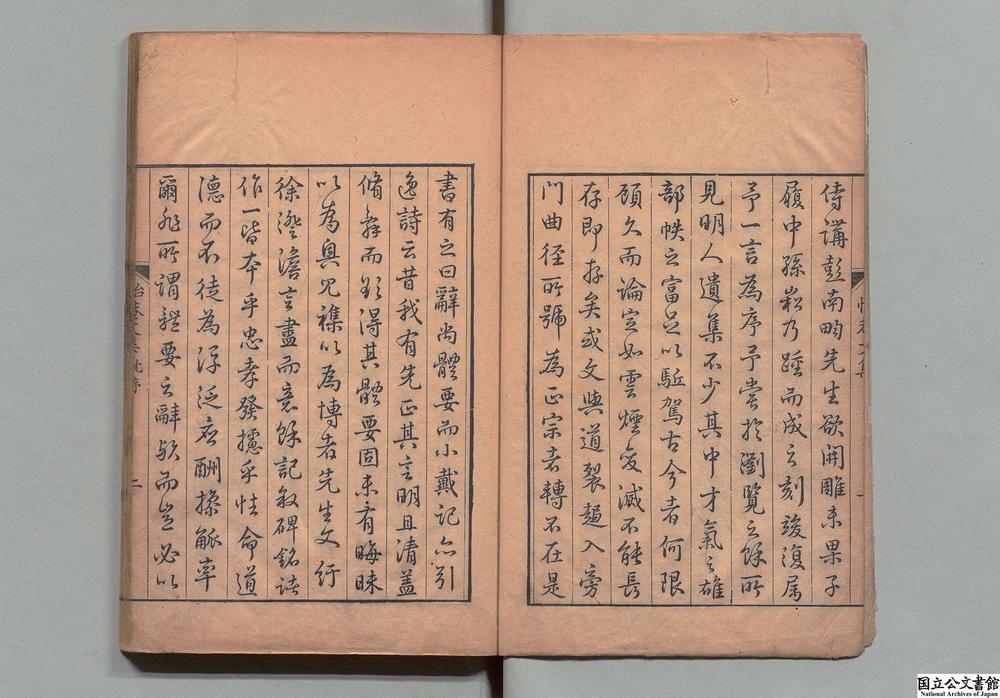 侍講彭南畇先生欲開雕未果子
履中孫崧乃踵而成之刻竣復属
予一言為序予嘗於瀏覽之餘所
見明人遺集不少其中才氣之雄
部帙之富足以駈駕古今者何限
顧久而論定如雲煙変滅不能長
存即存矣或文與道裂趨入旁
門曲徑所號為正宗者轉不在是
書有之曰辭尚體要而小戴記亦引
逸詩云昔我有先正其言明且清盖
脩辞而欲得其體要固未有晦昧
以為奥冗襍以為博者先生文紆
徐澄澹言盡而意餘記敘碑銘諸
作一皆本乎忠孝發攄乎性命道
德而不徒為浮泛应酬操觚率
爾非所謂體要之辭歟而豈必以
二
国立公文書館
National Archives of Japan